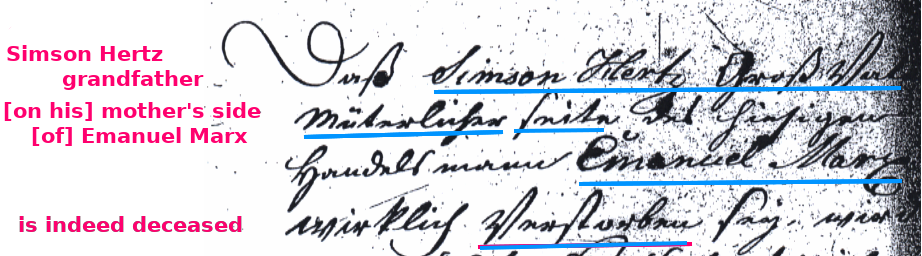 Simson Hertz
grandfather
[on his] mother's side
[of] Emanuel Marx
is indeed deceased
Daß Simson Hertz Groß Vat
Müterlicher seite des hiesigen
Handelsmann Emanuel Marx
wirklich Verstorben sey, wird